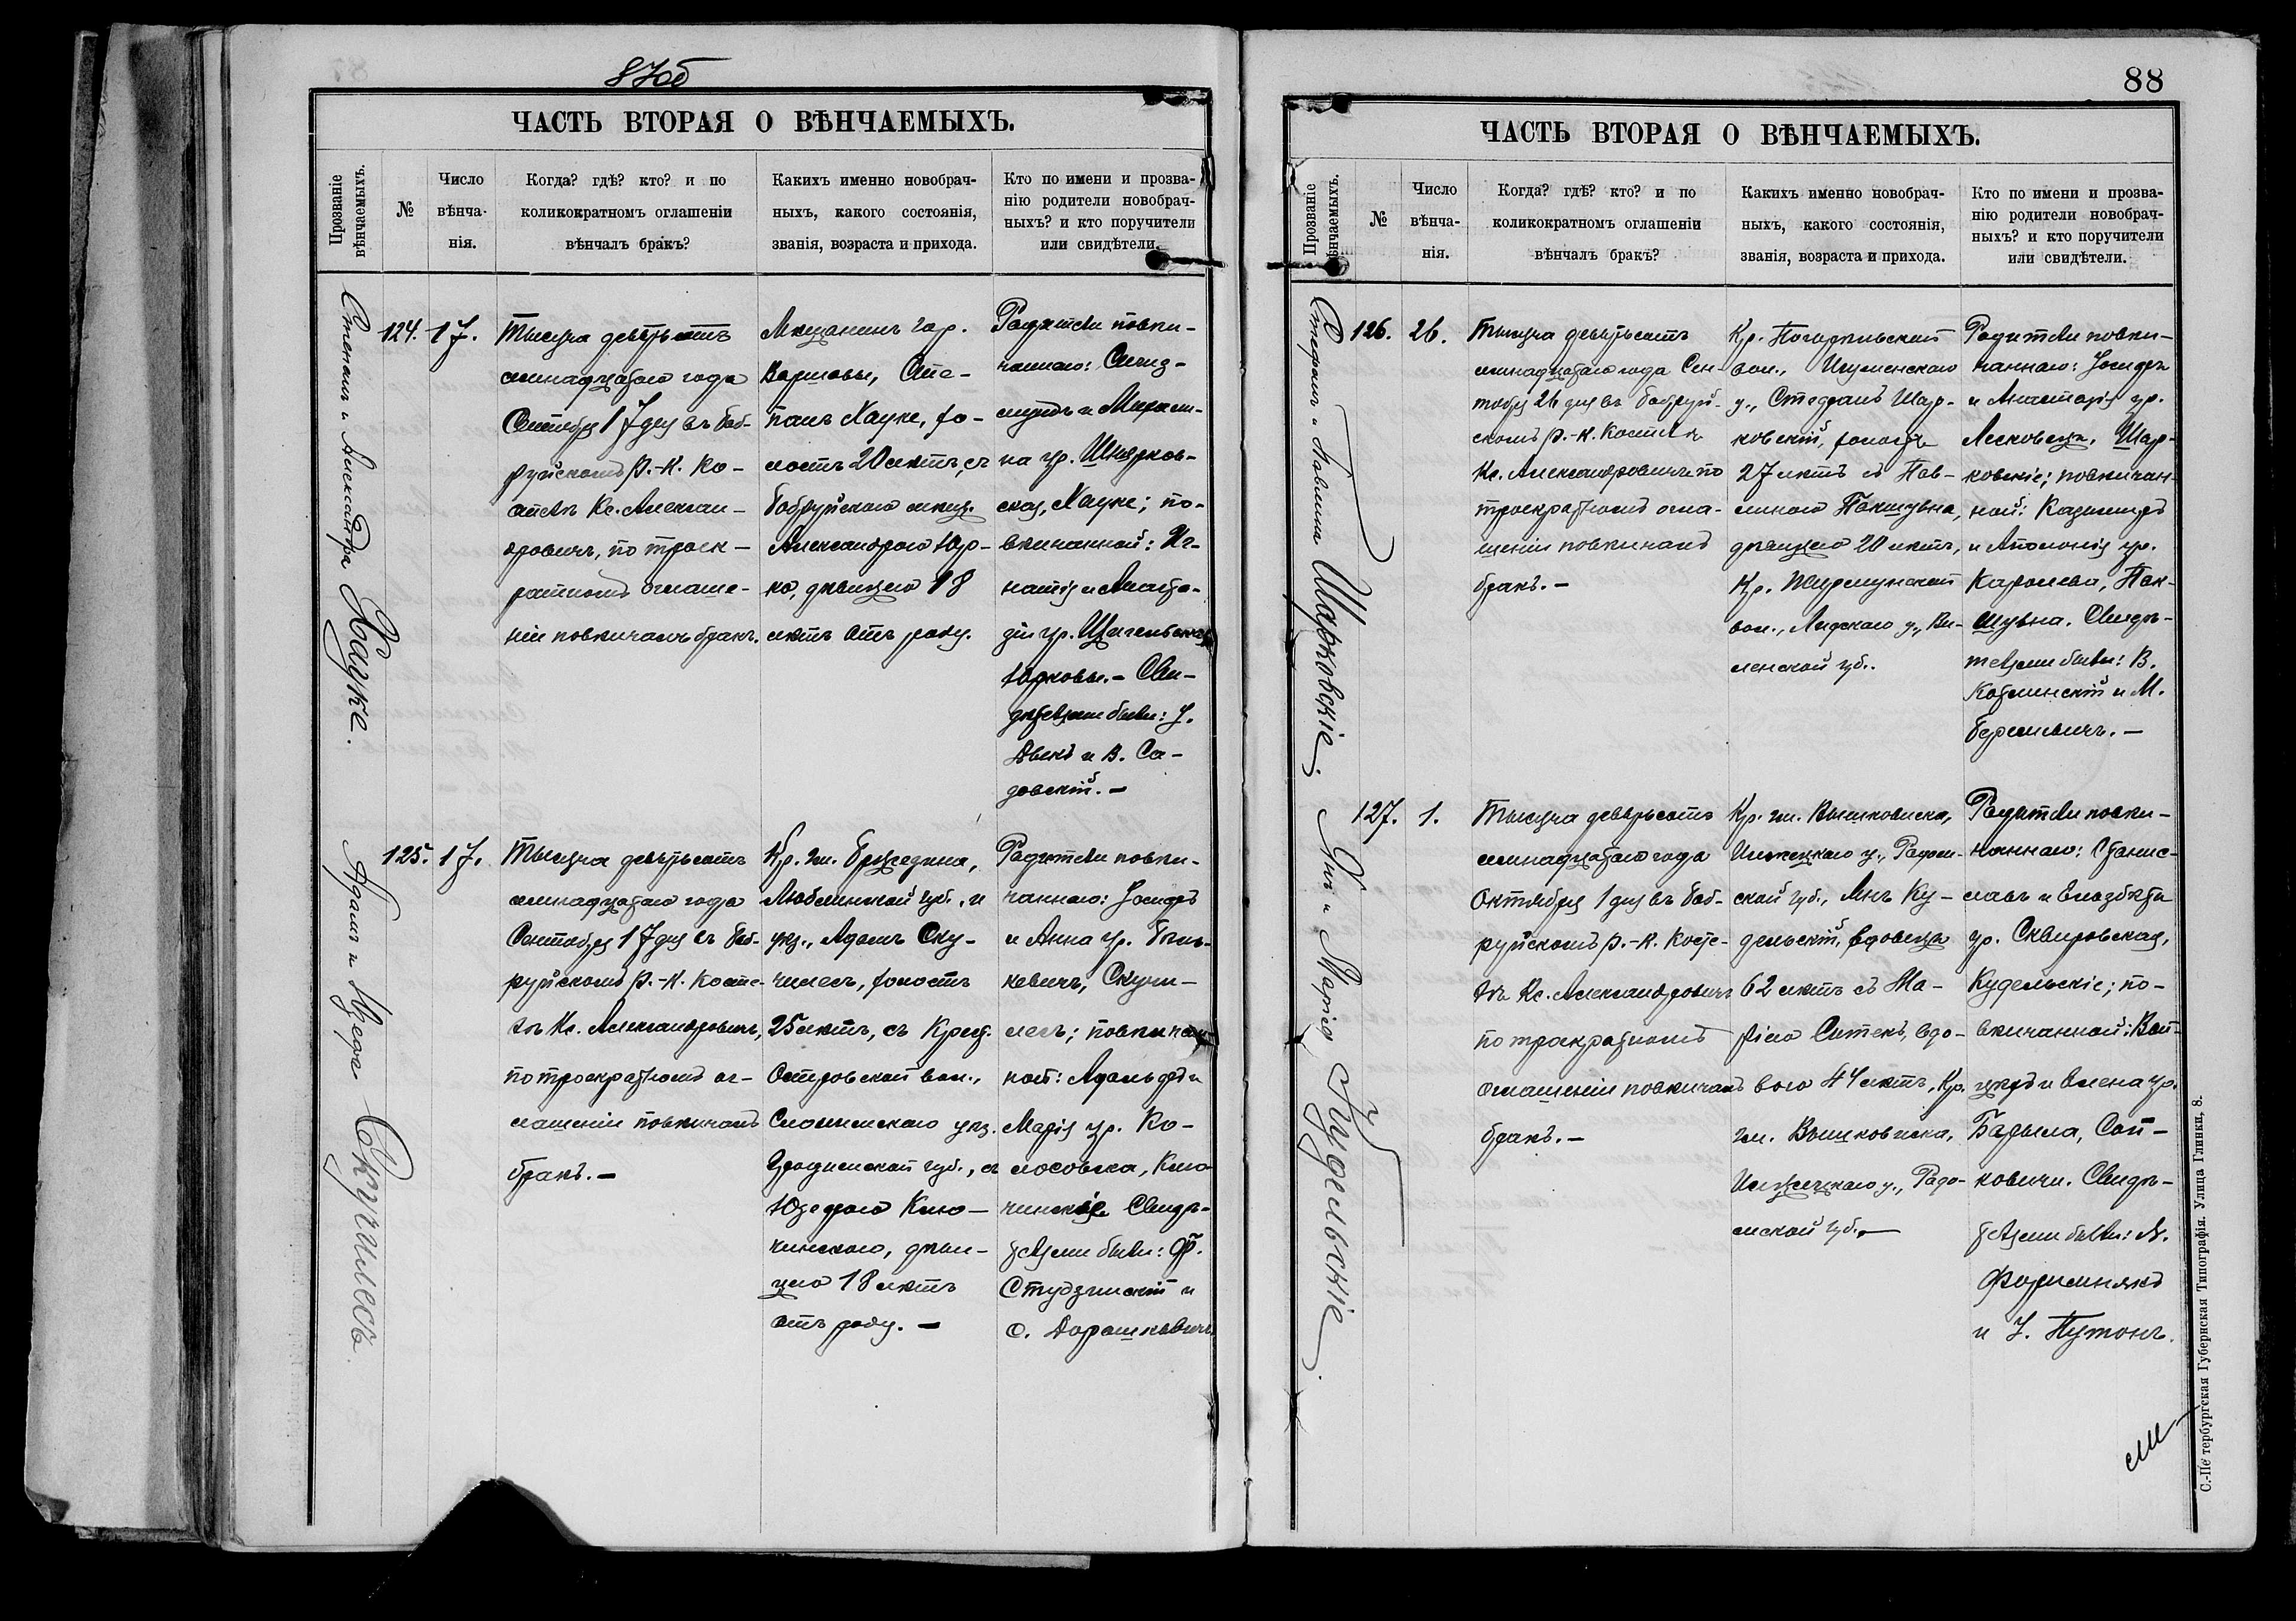 87об
ЧАСТЬ ВТОРАЯ О ВѢНЧАЕМЫХЪ.
Прозваніе
вѣнчаемыхъ.
№
Число
вѣнча-
нія.
Когда? гдѣ? кто? и по
коликократномъ оглашеніи
вѣнчалъ бракъ?
Какихъ именно новобрач-
ныхъ, какого состоянія,
званія, возраста и прихода.
Кто по имени и прозва-
нію родители новобрач-
ныхъ? и кто поручители
или свидѣтели.
Степанъ и Александра Хауке.
124.
17.
Тысяча девятьсотъ
семнадцатаго года
Сентября 17 дня въ Боб-
руйскомъ Р.-К. Ко-
стелѣ Кс. Алексан-
дровичъ, по троек-
ратномъ оглаше-
ніи повѣнчалъ бракъ.
Мѣщанинъ гор.
Варшавы, Сте-
панъ Хауке, хо-
лостъ 20 лѣтъ, съ
Бобруйскою мѣщ.
Александрою Юр-
ко, дѣвицею 18
лѣтъ отъ роду.
Родители повѣн-
чаннаго: Сигиз-
мундъ и Мариан-
на ур.
Хауке; по-
вѣнчанной: Иг-
натія и
ур.
Юрковы. - Сви-
дѣтелями были: І.
и В. Са-
довскій. -
Адамъ и Юзефа Скучилесъ.
125.
17.
Тысяча девятьсотъ
семнадцатаго года
Сентября 17 дня въ Боб-
руйскомъ Р.-К. Косте-
лѣ Кс. Александровичъ,
по троекратномъ ог-
лашеніи повѣнчалъ
бракъ. -
Кр. гм.
Люблинской губ., и
уѣз., Адамъ Ску-
чилесъ, холостъ
25 лѣтъ, съ Крест.
Островской вол.,
Слонимскаго уѣз.
Гродненской губ., съ
Юзефою Клю-
чинскою, дѣви-
цею 18 лѣтъ
отъ роду. -
Родители повѣн-
чаннаго: Іосифъ
и Анна ур.
кевичъ, Скучи-
лесъ; повѣнчан-
ной: Адольфъ и
Марія ур. Ко-
лосовска, Клю-
чинскіе. Свидѣ-
телями были: Ф.
Студзинскій и
С. Дорошкевичъ
88
ЧАСТЬ ВТОРАЯ О ВѢНЧАЕМЫХЪ.
Прозваніе
вѣнчаемыхъ.
№
Число
вѣнча-
нія.
Когда? гдѣ? кто? и по
коликократномъ оглашеніи
вѣнчалъ бракъ?
Какихъ именно новобрач-
ныхъ, какого состоянія,
званія, возраста и прихода.
Кто по имени и прозва-
нію родители новобрач-
ныхъ? и кто поручители
или свидѣтели.
Стефанъ и Павлина Шарковскіе.
126.
26.
Тысяча девятьсотъ
семнадцатаго года Сен-
тября 26 дня въ Бобруй-
скомъ Р.-К. Костелѣ
Кс. Александровичъ по
троекратномъ огла-
шеніи повѣнчалъ
бракъ. -
Кр. Погорѣльской
вол., Игуменскаго
у., Стефанъ Шар-
ковскій, холостъ
27 лѣтъ съ Пав-
линою Пекшувна,
дѣвицею 20 лѣтъ,
Кр. Жирмунской
вол., Лидскаго у., Ви-
ленской губ.
Родители повѣн-
чаннаго: Іосифъ
и Анастасія ур.
Лисковецъ, Шар-
ковскіе; повѣнчан-
ной: Казимиръ
и Аполонія ур.
Каролева, Пек-
шувна. Свидѣ-
телями были: В.
Котлинскій и М.
Янъ и Марія Кудельскіе.
127.
1.
Тысяча девятьсотъ
семнадцатаго года
Октября 1 дня въ Боб-
руйскомъ Р.-К. Косте-
лѣ Кс. Александровичъ
по троекратномъ
оглашеніи повѣнчалъ
бракъ. -
Кр. гм.
Илжецкаго у., Радом-
ской губ., Янъ Ку-
дельскій, вдовецъ
62 лѣтъ съ Ма-
ріею Ситекъ, вдо-
вою 44 лѣтъ, Кр.
гм.
Илжецкаго у., Радо-
мской губ. -
Родители повѣн-
чаннаго: Станис-
лавъ и Елизбета
ур. Сквировская,
Кудельскіе; по-
вѣнчанной: Вой-
цехъ и Елена ур.
Барыла, Сой-
ковичи. Свидѣ-
телями были: А.
Форимнякъ
и І. Путонъ.
С.-Петербургская Губернская Типографія. Улица Глинки, 8.